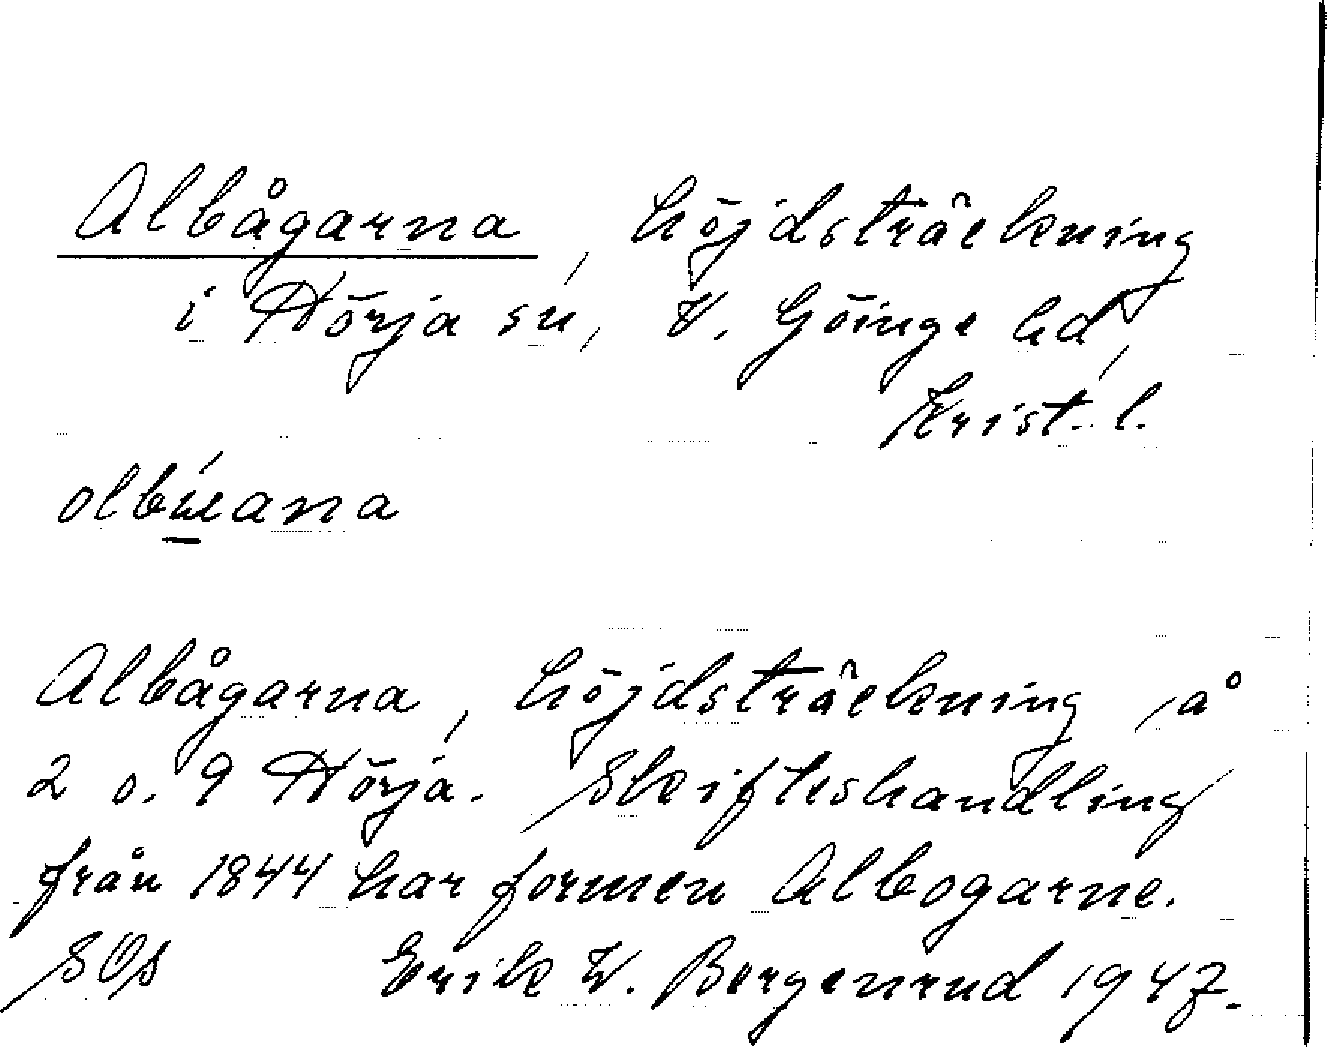 Albågarna, höjdsträckning
i Hörja sn, V. Göinge hd,
Krist. l.
Albågarna, höjdsträckning på
2 o. 9 Hörja. Skifteshandling
från 1844 har formen Albogarne.
SOS Erik W. Bergenrud 1947.